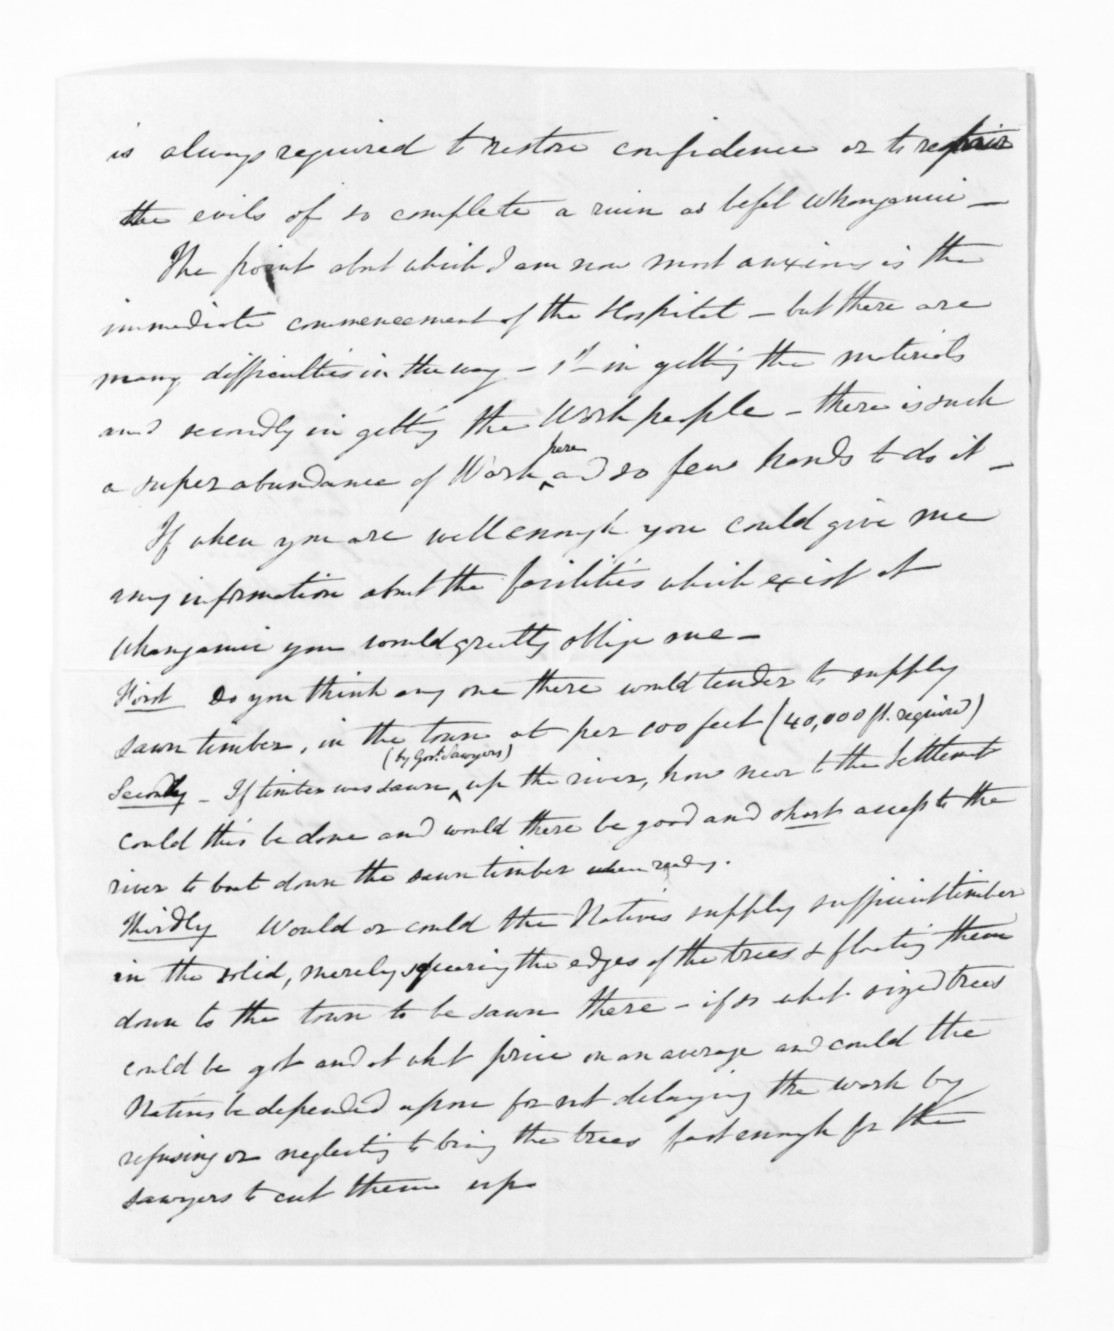 is always required to restore confidence or to repair
the evils of so complete a ruin as befel Whanganui —
The point about which I am now most anxious is the
immediate commencement of the Hospital — but there are
many difficulties in the way — 1st in getting the materials
and secondly in getting the Work people — there is such
a super abundance of Work here and so few hands to do it —
If when you are well enough you could give me
any information about the facilities which exist at
Whanganui you would greatly oblige me —
First Do you think any one there would tender to supply
sawn timber, in the town at per 100 feet (40,000 ft. required)
Secondly — If timber was sawn (by Govt. Sawyers) up the river, how near to the Settlement
could this be done and would there be good and short access to the
river to boat down the sawn timber when ready.
Thirdly Would or could the Natives supply sufficient timber
in the solid, merely squaring the edges of the trees & floating them
down to the town to be sawn there — if so what sized trees
could be got and at what price on an average and could the
Natives be depended upon for not delaying the work by
refusing or neglecting to bring the trees fast enough for the
sawyers to cut them up